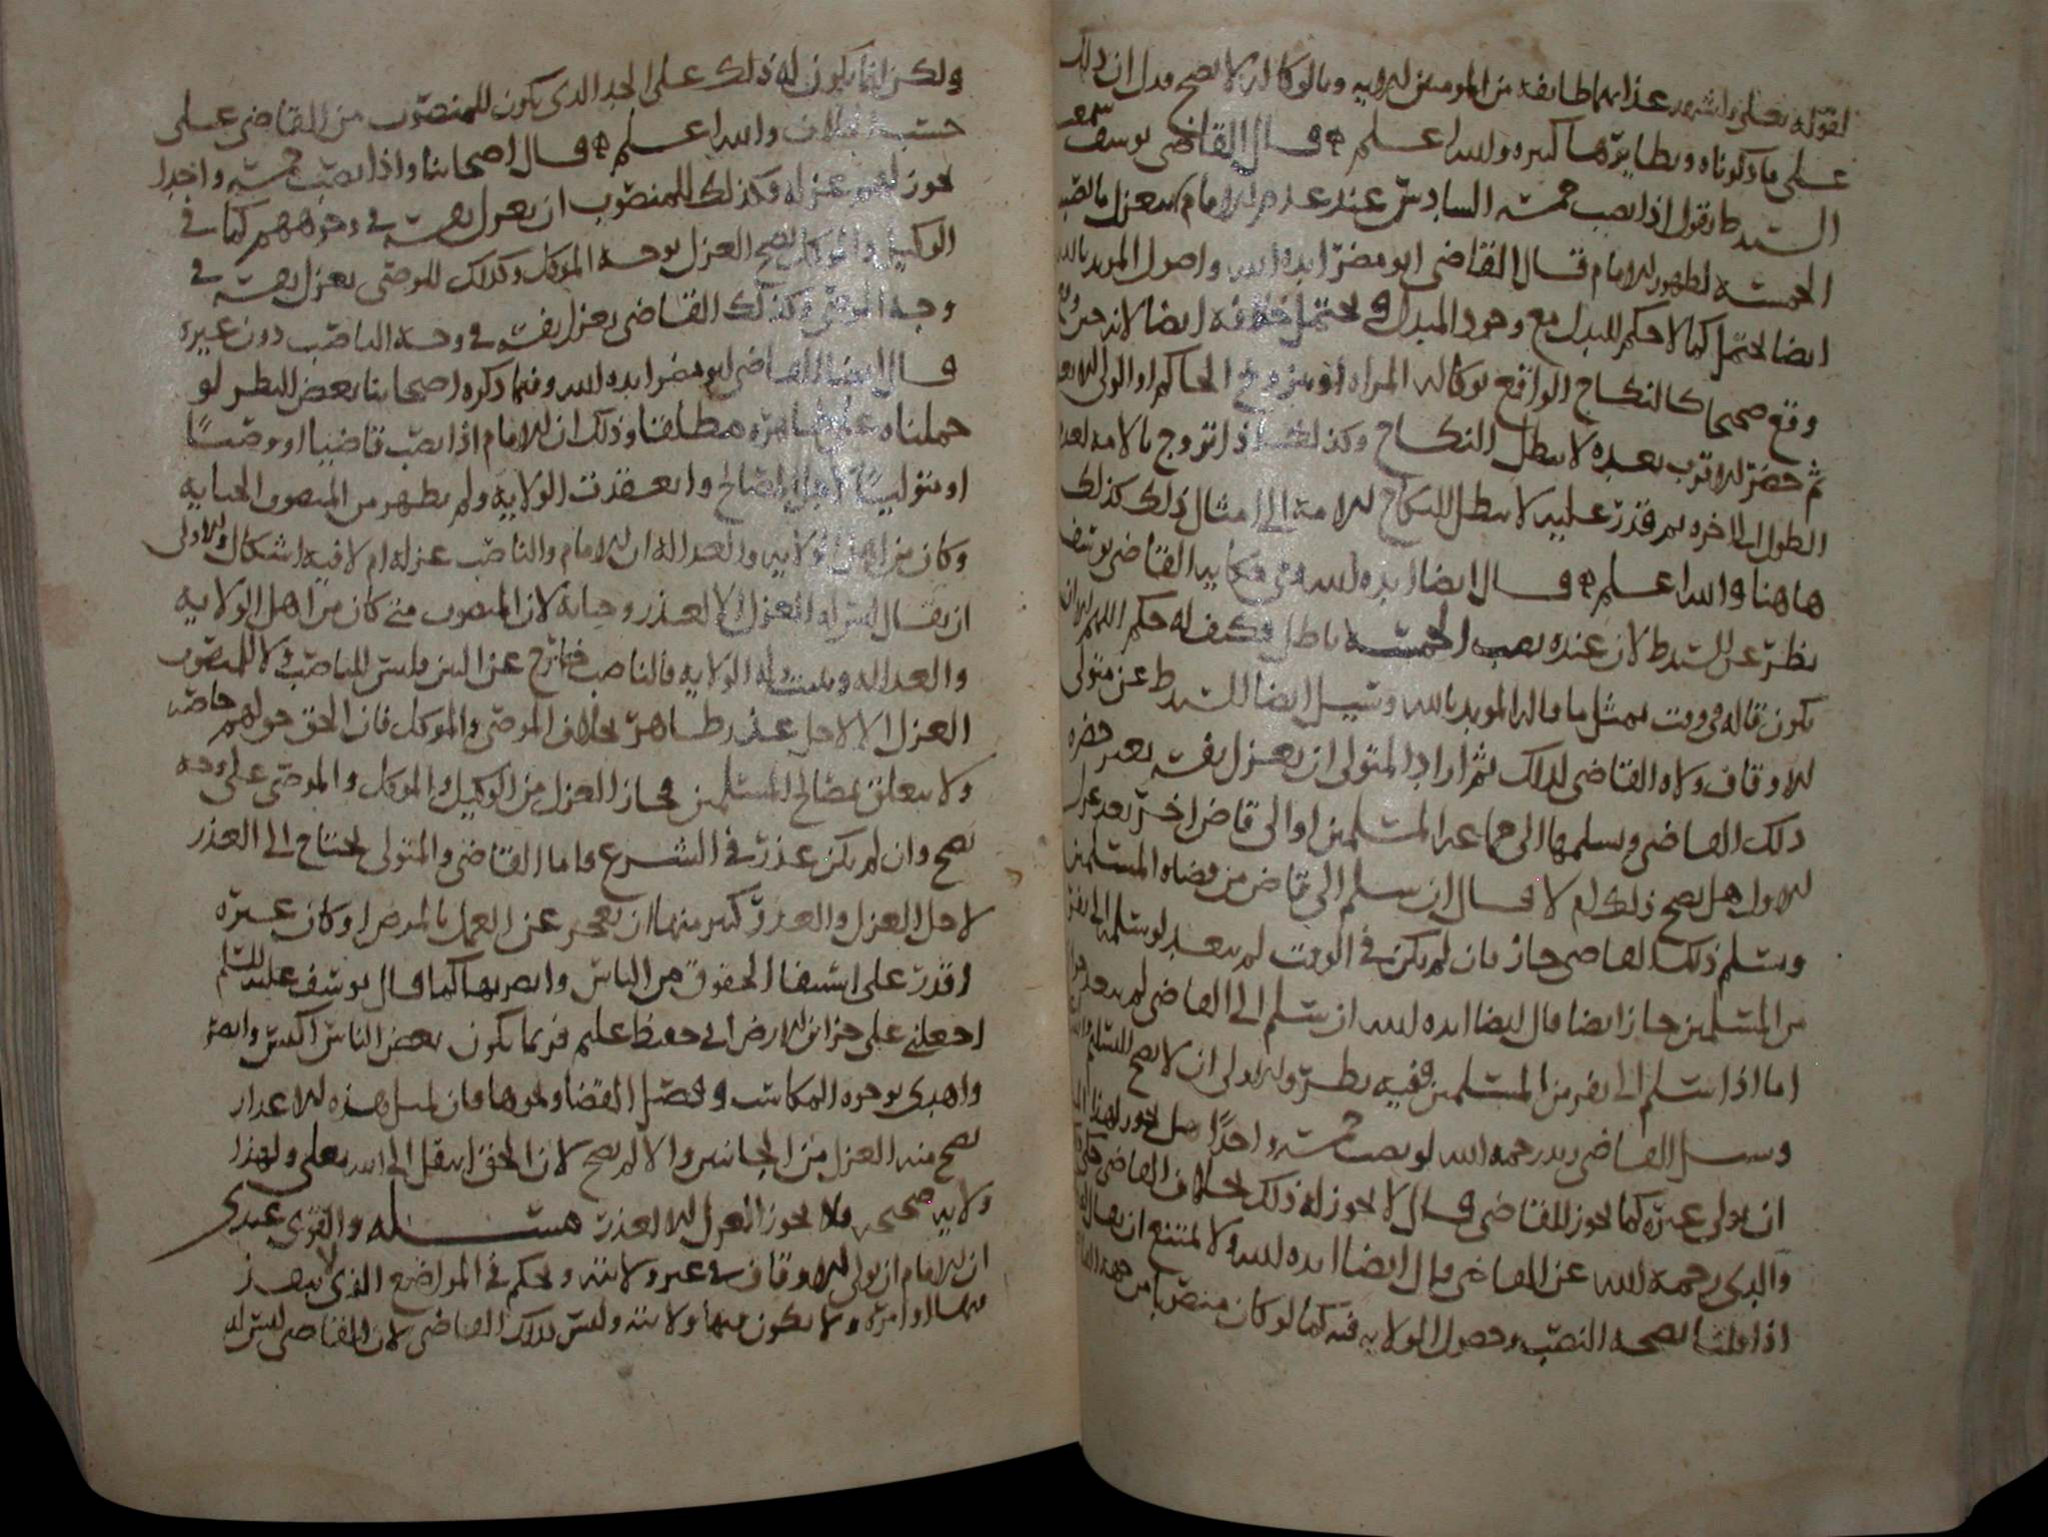 لقوله تعلى وليشهد عذابهما طايفة من المومنين لا وبالوكالة لا يصح فدل ان ذلك
على ما ذكرناه ونظايرها كثيره والله اعلم قال القاضي يوسف سمعت
السيد ط يقول اذا نصب خمسه السادس عند عدم الامام انعزل ما نصب
الخمسة لظهور الامام قال القاضي ابو مضر ايده الله واصول المويد بالله
ايضا يحتمل كما لا حكم للبدل مع وجود المبدل ويحتمل خلافه ايضا لانه حين
وقع صحيحا كالنكاح الواقع بوكالة المراه او بتزويج الحاكم او الولي الابعد
ثم حضر الاقرب بعده لا يبطل النكاح وكذلك اذا تزوج بالامه لعدم
الطول الى الحره ثم قدر عليه لا يبطل النكاح للامة الى امثال ذلك كذلك
هاهنا والله اعلم قال ايضا ايده الله وفي حكاية القاضي يوسف
نظر عن السيد ط لان عنده نصب الخمسة باطل فكيف له حكم اللهم الا ان
يكون قاله في وقت بمثل ما قاله المويد بالله وسيل ايضا السيد ط عن متولي
للاوقاف ولاه القاضي لذلك ثم اراد المتولي ان يعزل نفسه بغير حضره
ذلك القاضي ويسلمها الى جماعة المسلمين او الى قاض اخر بعد عزل
الاول هل يصح ذلك ام لا قال ان سلم الى قاض من قضاه المسلمين
وتسلم ذلك القاضي جاز فان لم يكن في الوقت لم يبعد لو سلمه الى نفر
من المسلمين جاز ايضا قال ايضا ايده الله ان سلم الى القاضي لم يبعد
اما اذا سلم الى نفر من المسلمين ففيه نظر والاولى ان لا يصح
وسيل القاضي زيد رحمه الله لو نصب خمسة واحدا هل يجوز لهذا
ان يولي غيره كما يجوز للقاضي قال لا يجوز له ذلك بخلاف القاضي
والدي رحمه الله عن القاضي قال ايضا ايده الله ولا يمتنع ان يقال
اذا قلنا بصحة النصب وحصول الولايه فيه كما لو كان منصوبا من جهة
ولكن انما يكون له ذلك على الحد الذي يكون للمنصوب من القاضي على
حسب الخلاف والله اعلم قال اصحابنا واذا نصب خمسة واحدا
يجوز لهم عزله وكذلك للمنصوب ان يعزل نفسه في وجوههم كما في
الوكيل والموكل يصح العزل بوجه الموكل وكذلك الموصى يعزل نفسه في
وجه الموصي وكذلك القاضي يعزل نفسه في وجه الناصب دون غيره
قال ايضا القاضي ابو مضر ايده الله وفيما ذكره اصحابنا بعض النظر لو
حملناه على ظاهره مطلقا وذلك ان الامام اذا نصب قاضيا او وصيا
او متوليا لاجل المصالح وانعقدت الولايه ولم يظهر من المنصوب الخيانه
وكان من اهل الولايه والعدالة ان للامام والناصب عزله ام لا فيه اشكال والاولى
ان يقال ليس له العزل الا لعذر وخيانة لان المنصوب متى كان من اهل الولايه
والعداله وثبتت له الولايه فالناصب خارج عن البين فليس للناصب ولا للمنصوب
العزل الا لاجل عذر ظاهر بخلاف الموصي والموكل فان الحق حق لهم خاصه
ولا يتعلق بمصالح المسلمين فجاز العزل من الوكيل والموكل والموصي على وجه
يصح وان لم يكن عذر في الشرع واما القاضي والمتولي يحتاج الى العذر
لاجل العزل والعذر كثير منها ان يعجز عن العمل بالمرض او كان غيره
اقدر على استيفا الحقوق من الناس وابصر بها كما قال يوسف عليه السلم
اجعلني على خزائن الارض اني حفيظ عليم فربما يكون بعض الناس اكيس وابصر
واهدى بوجوه المكاسب وفصل القضا ونحوها فان لمثل هذه الاعذار
يصح منه العزل من الجانبين والا لم يصح لان الحق انتقل الى الله تعلى ولهذا
ولايه صحيحه فلا يجوز العزل الا لعذر مسئله والاقوى عندي
ان للامام ان يولي للاوقاف في غير ولايته ويحكم في المواضع الذي لا ينفذ
فيها اوامره ولا يكون فيها ولايته وليس كذلك القاضي لان القاضي ليس له